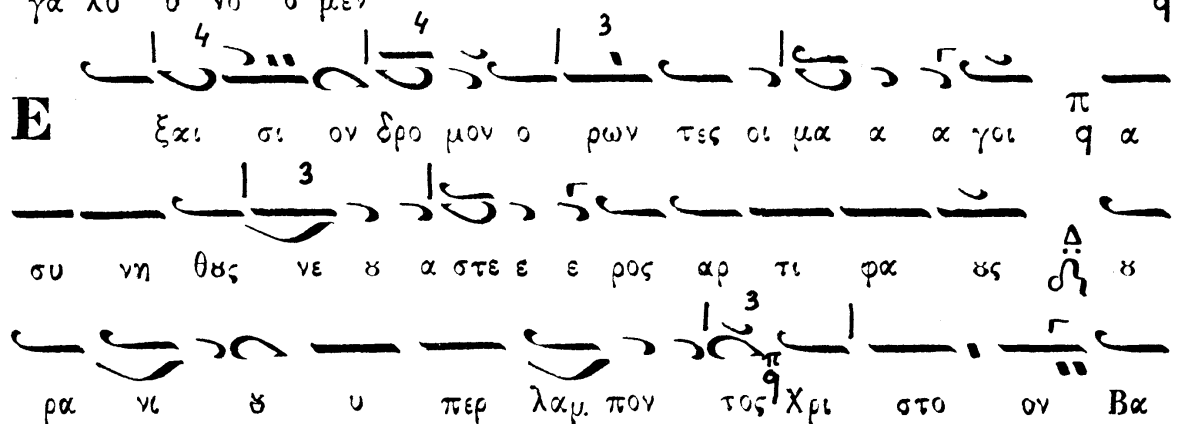 γα λο υ νο ο μεν
4 4 3
Ε ξαι σι ον δρο μον ο ρων τες οι μα α α γοι π q α
3
συ νη θȣς νε ȣ α στε ε ε ρος αρ τι φα ȣς Δ ȣ
3
ρα νι ȣ υ περ λαμ. πον τος π q Χρι στο ον Βα